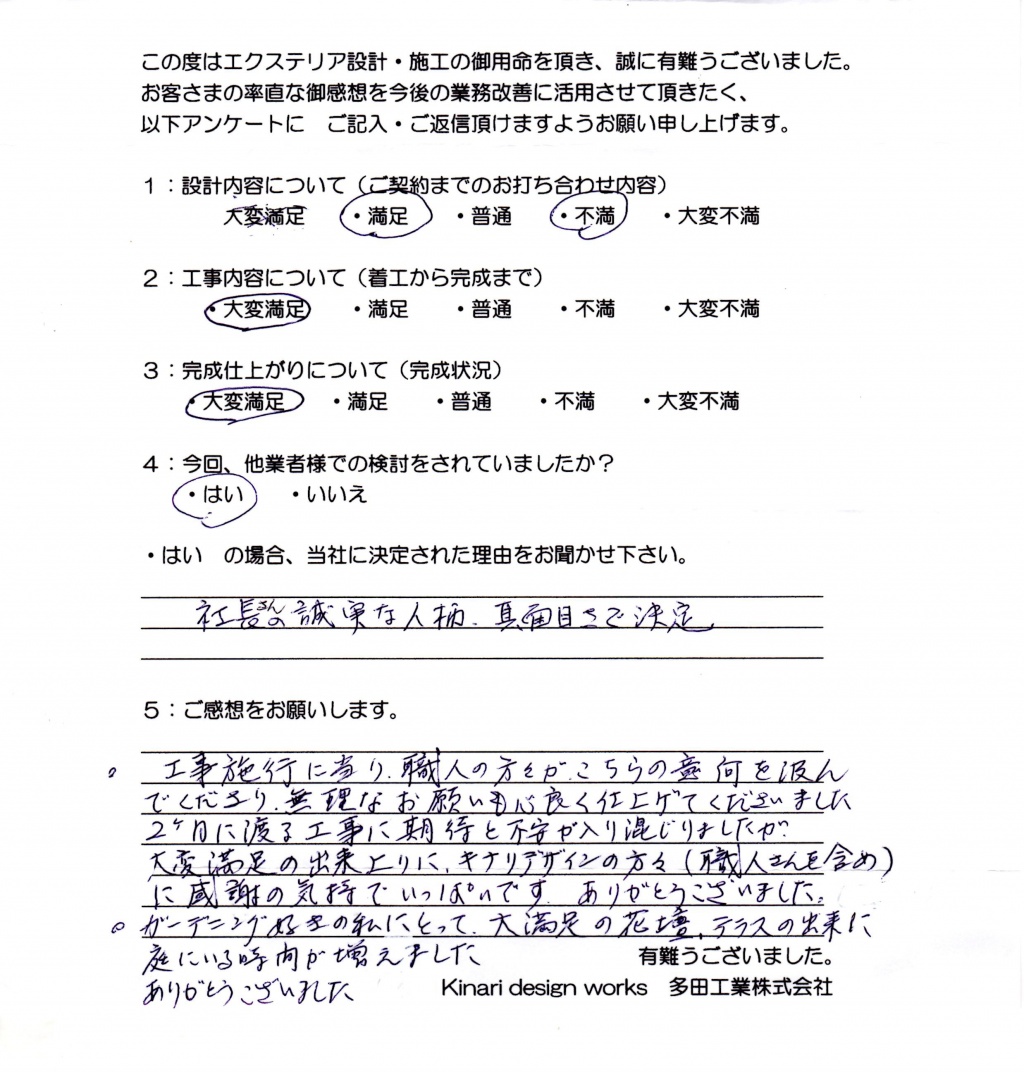 この度はエクステリア設計・施工の御用命を頂き、誠に有難うございました。
お客さまの率直な御感想を今後の業務改善に活用させて頂きたく、
以下アンケートに　ご記入・ご返信頂けますようお願い申し上げます。
1：設計内容について（ご契約までのお打ち合わせ内容）
大変満足　・満足　・普通　・不満　・大変不満
2：工事内容について（着工から完成まで）
・大変満足　・満足　・普通　・不満　・大変不満
3：完成仕上がりについて（完成状況）
・大変満足　・満足　・普通　・不満　・大変不満
4：今回、他業者様での検討をされていましたか？
・はい　・いいえ
・はい　の場合、当社に決定された理由をお聞かせ下さい。
社長さんの誠実な人柄、真面目さで決定
5：ご感想をお願いします。
。工事施行に当り、職人の方々が、こちらの意向を汲ん
でくださり、無理なお願いも心良く仕上げてくださいました
2ヶ月に渡る工事に期待と不安が入り混じりましたが
大変満足の出来上りに、キナリデザインの方々（職人さんを含め）
に感謝の気持でいっぱいです。ありがとうございました。
。ガーデニング好きの私にとって、大満足の花壇、テラスの出来に
庭にいる時間が増えました
有難うございました。
ありがとうございました
Kinari design works　多田工業株式会社